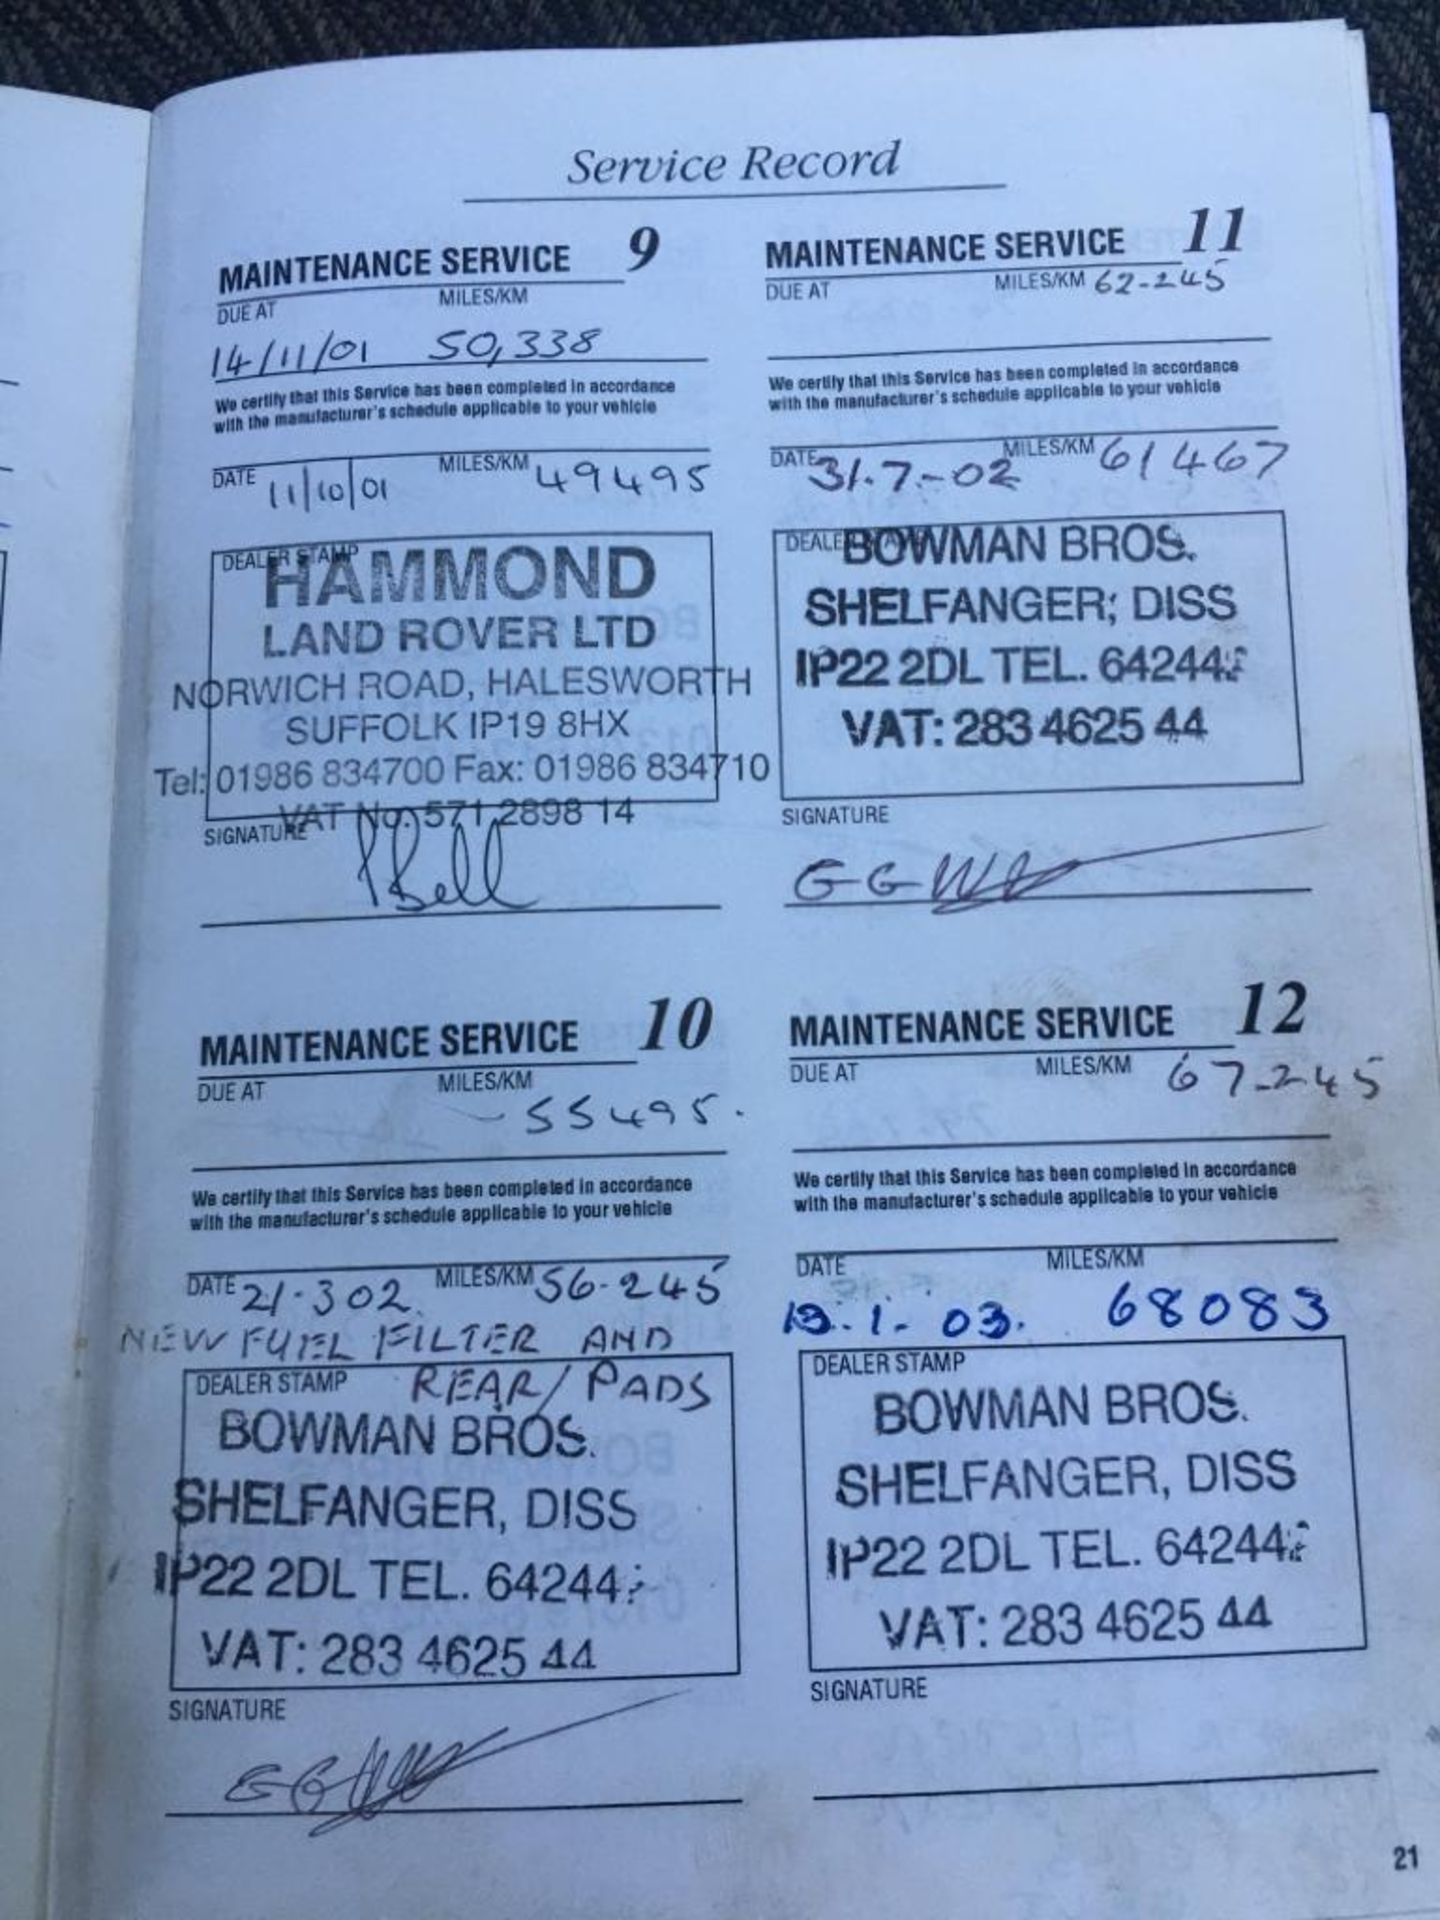 Service Record
MAINTENANCE SERVICE 9
DUE AT MILES/KM
14/11/01 50,338
We certify that this Service has been completed in accordance
with the manufacturer's schedule applicable to your vehicle
DATE 11/10/01 MILES/KM 49495
DEALER STAMP
HAMMOND
LAND ROVER LTD
NORWICH ROAD, HALESWORTH
SUFFOLK IP19 8HX
Tel: 01986 834700 Fax: 01986 834710
VAT No. 571 2898 14
SIGNATURE
Bell
MAINTENANCE SERVICE 10
DUE AT MILES/KM
55495.
We certify that this Service has been completed in accordance
with the manufacturer's schedule applicable to your vehicle
DATE 21.302. MILES/KM 56-245
NEW FUEL FILTER AND
DEALER STAMP REAR/PADS
BOWMAN BROS.
SHELFANGER, DISS
IP22 2DL TEL. 64244
VAT: 283 4625 44
SIGNATURE
MAINTENANCE SERVICE 11
DUE AT MILES/KM 62-245
We certify that this Service has been completed in accordance
with the manufacturer's schedule applicable to your vehicle
DATE 31.7.-02 MILES/KM 61467
DEALER STAMP
BOWMAN BROS.
SHELFANGER, DISS
IP22 2DL TEL. 64244
VAT: 283 4625 44
SIGNATURE
MAINTENANCE SERVICE 12
DUE AT MILES/KM 67-245
We certify that this Service has been completed in accordance
with the manufacturer's schedule applicable to your vehicle
DATE MILES/KM
.1.03. 68083
DEALER STAMP
BOWMAN BROS.
SHELFANGER, DISS
IP22 2DL TEL. 64244
VAT: 283 4625 44
SIGNATURE
21